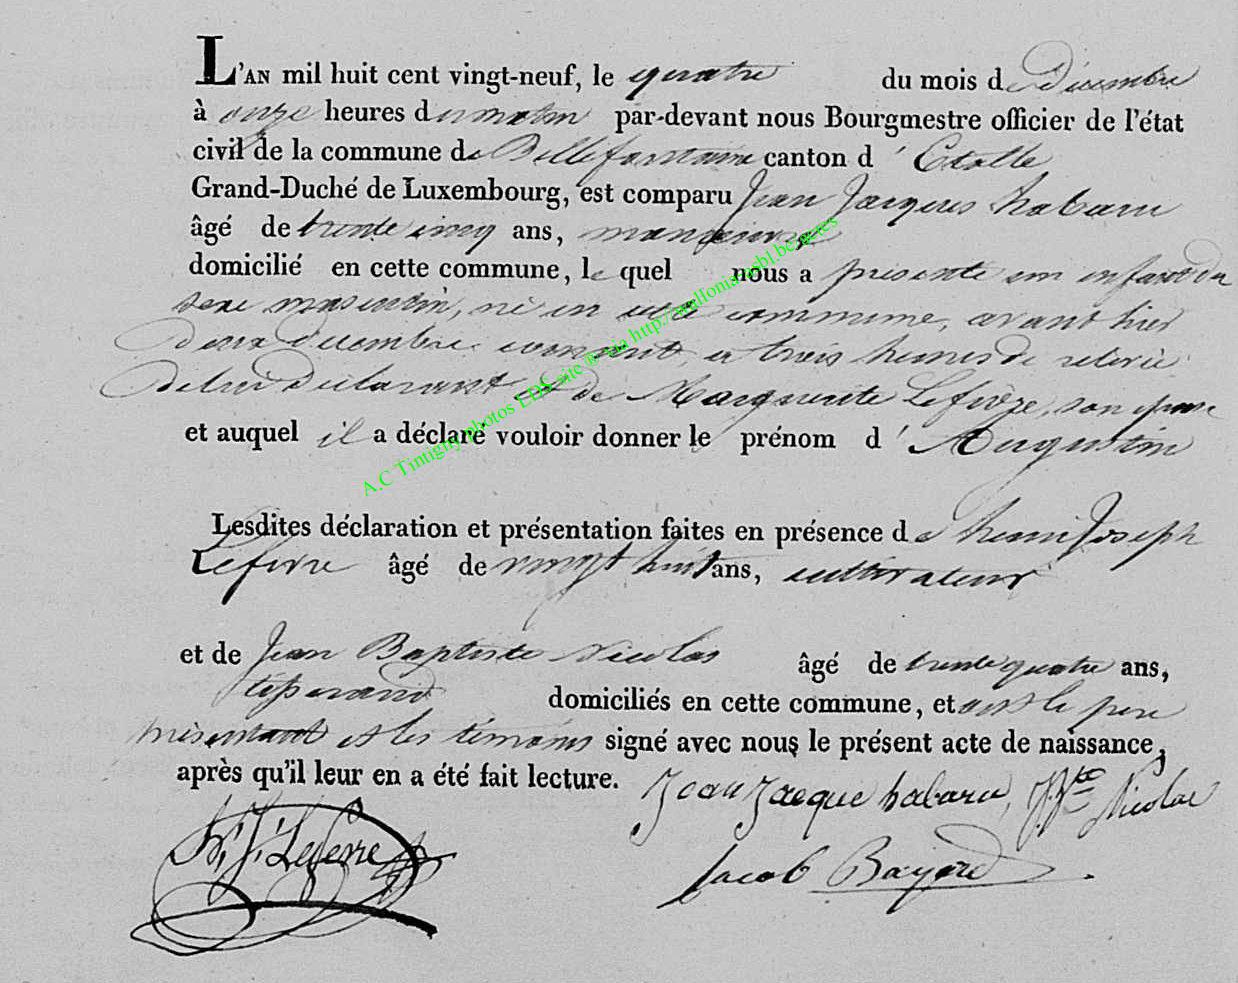 L'AN mil huit cent vingt-neuf, le quatre du mois de Décembre
à onze heures du matin par-devant nous Bourgmestre officier de l'état
civil de la commune de Bellefontaine canton d'Etalle
Grand-Duché de Luxembourg, est comparu Jean Jacques habaru
âgé de trente cinq ans, manœuvre
domicilié en cette commune, le quel nous a présenté un enfant du
sexe masculin, né en cette commune, avant hier
deux décembre courant, a trois heures de relevée
de lui déclarant et de Marguerite Lefevre, son épouse
et auquel il a déclaré vouloir donner le prénom d'Augustin
Lesdites déclaration et présentation faites en présence de henri Joseph
Lefevre âgé de vingt huit ans, cultivateur
et de Jean Baptiste Nicolas âgé de trente quatre ans,
tisserand domiciliés en cette commune, et ont le pere
présentant et les témoins signé avec nous le présent acte de naissance,
après qu'il leur en a été fait lecture.
Jean Jacque habaru, J Bte Nicolas
h. j. Lefevre
Jacob Bayard
A.C Tintigny photos LDS site ® via http://wallonia-asbl.be/actes